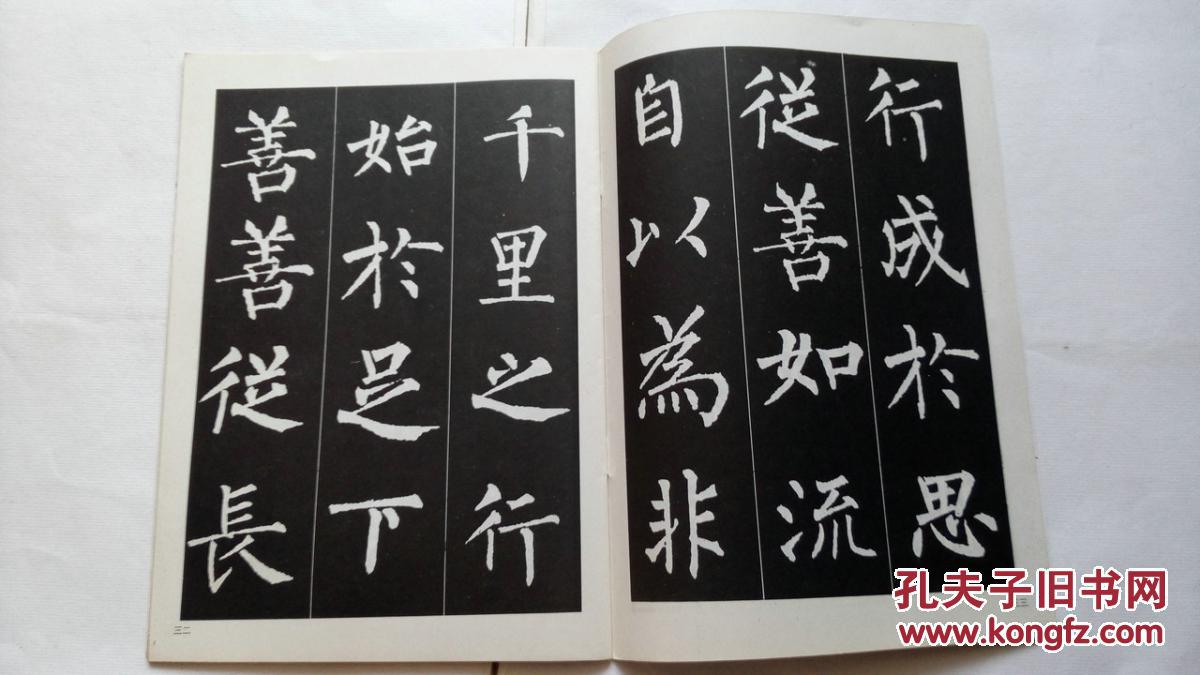 行成於思
從善如流
自以為非
千里之行
始於足下
善善從長
三二
孔夫子旧书网
www.kongfz.com